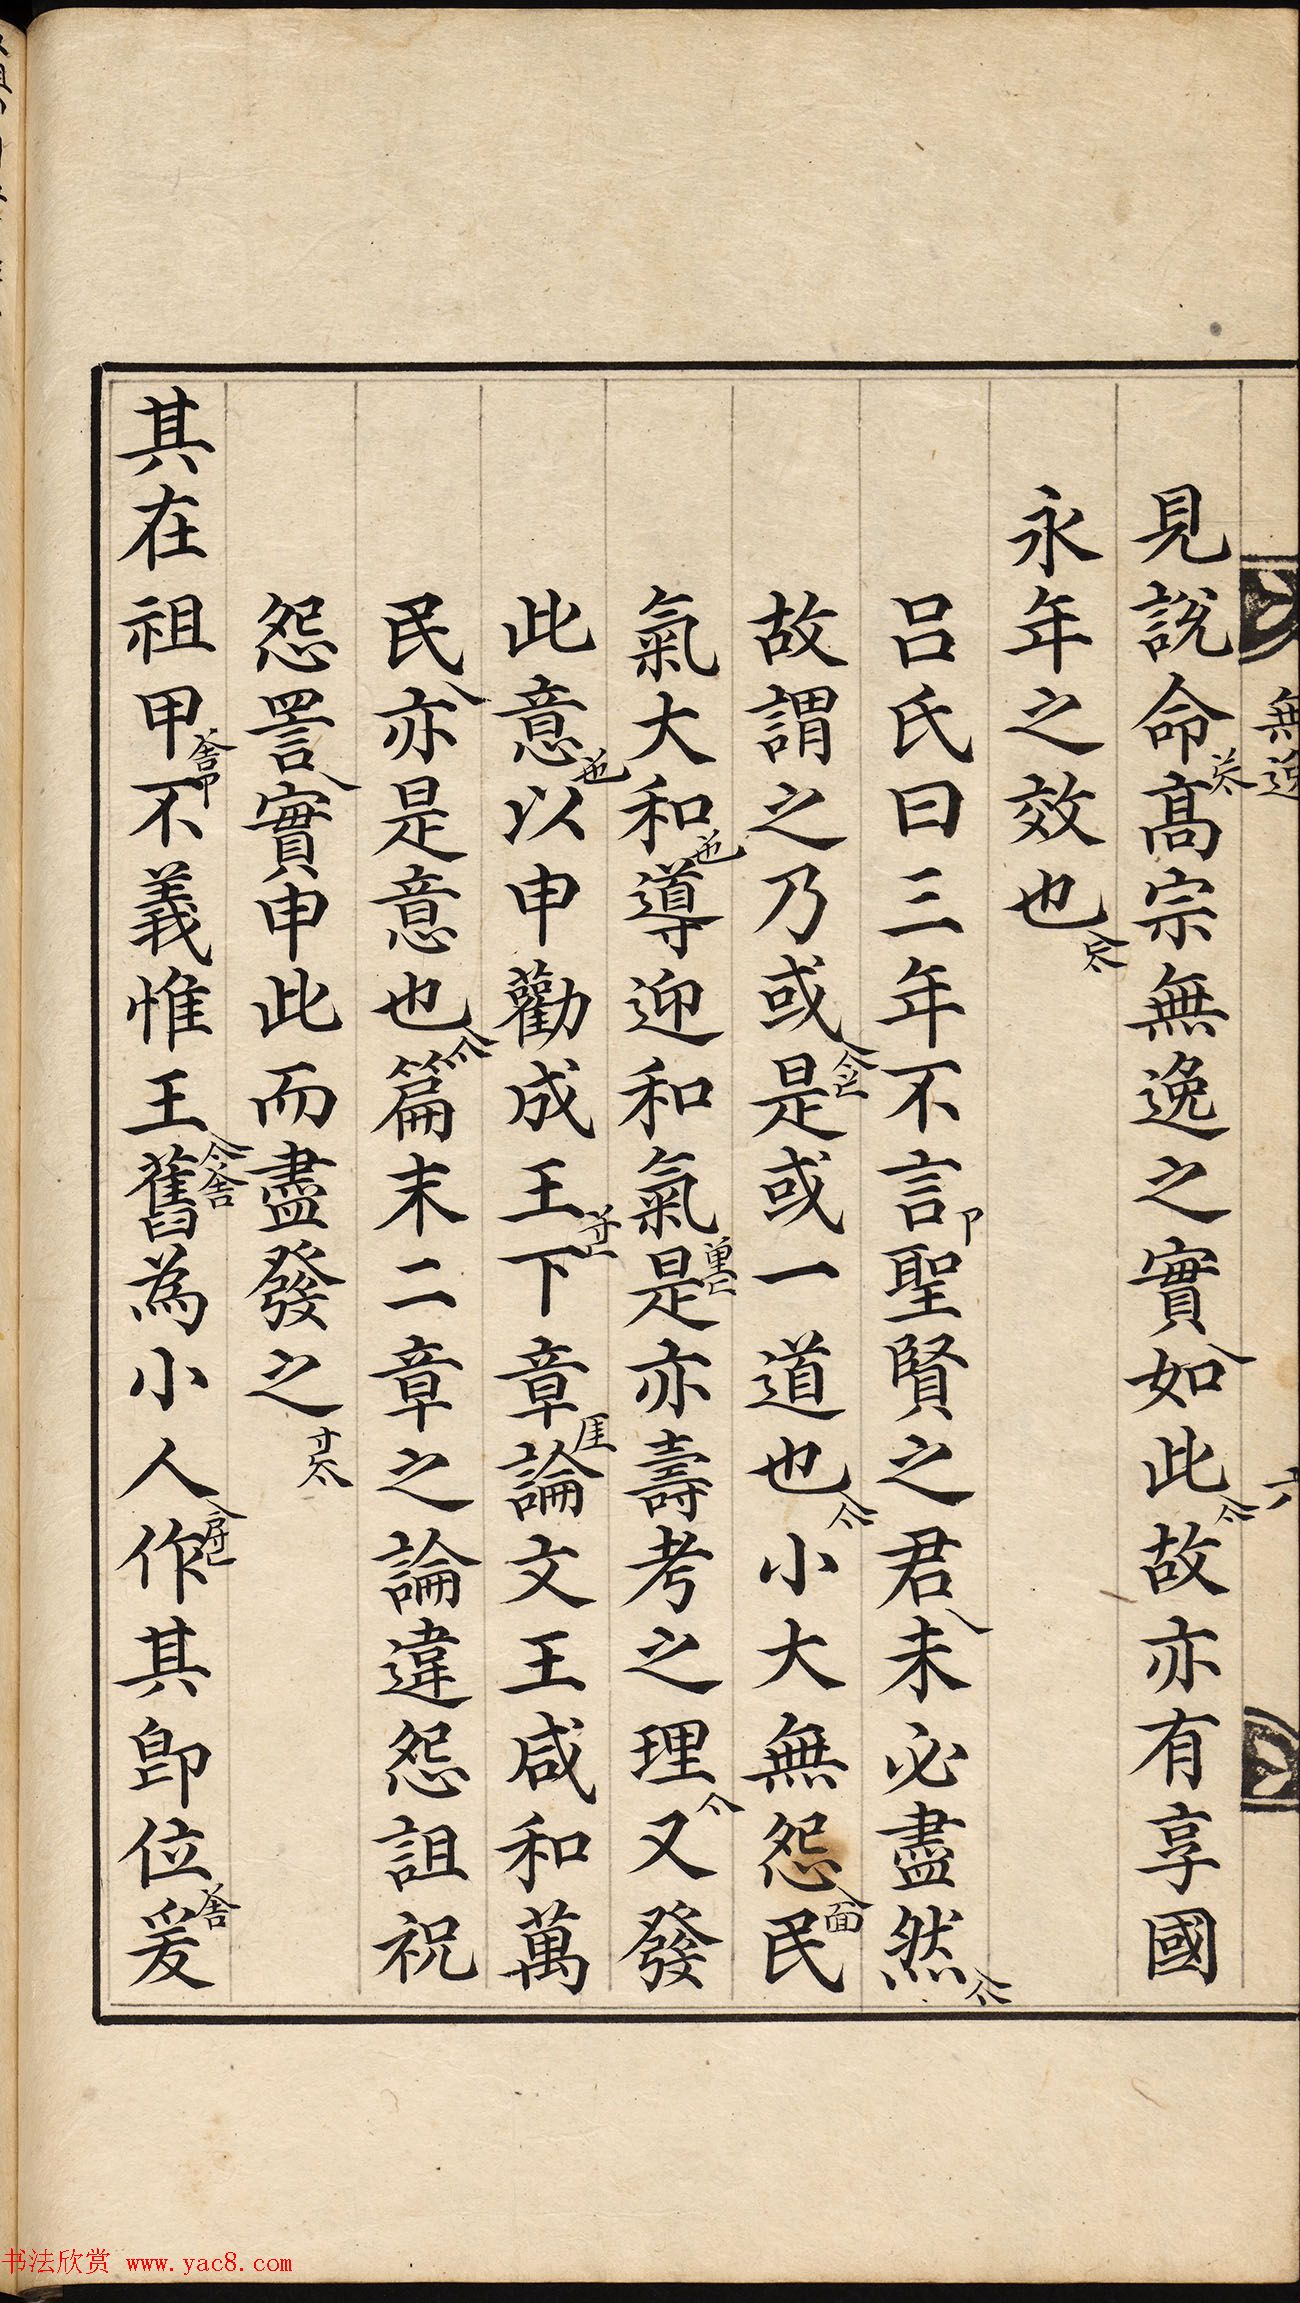 無逸 六
見說命高宗無逸之實如此故亦有享國
永年之效也
呂氏曰三年不言聖賢之君未必盡然
故謂之乃或是或一道也小大無怨民
氣大和導迎和氣是亦壽考之理又發
此意以申勸成王下章論文王咸和萬
民亦是意也篇末二章之論違怨詛祝
怨詈實申此而盡發之
其在祖甲不義惟王舊為小人作其卽位爰
书法欣赏 www.yac8.com